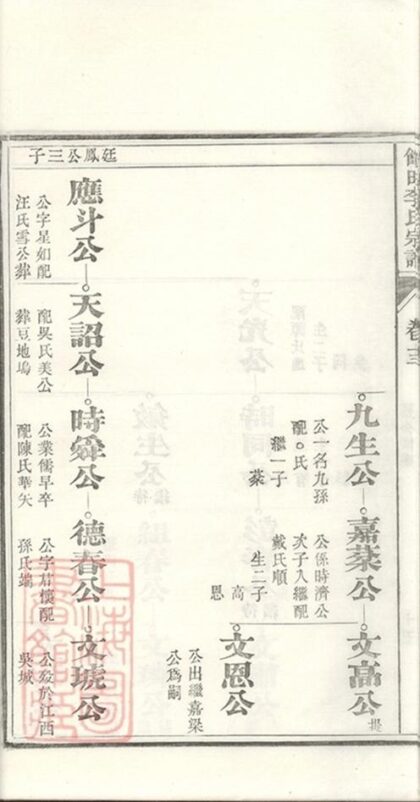 館田李氏宗譜
九生公
公一名九孫
配○氏
繼一子
棻
嘉棻公
公係時濟公
次子入繼配
戴氏順
生二子
高
恩
文高公
提
文恩公
公出繼嘉梁
公爲嗣
廷鳳公三子
應斗公
公字星如配
汪氏雪公葬
天詔公
配吳氏美公
葬豆地塢
時舜公
公業儒早卒
配陳氏華矢
德春公
公字君懷配
孫氏端
文琥公
公歿於江西
吳城